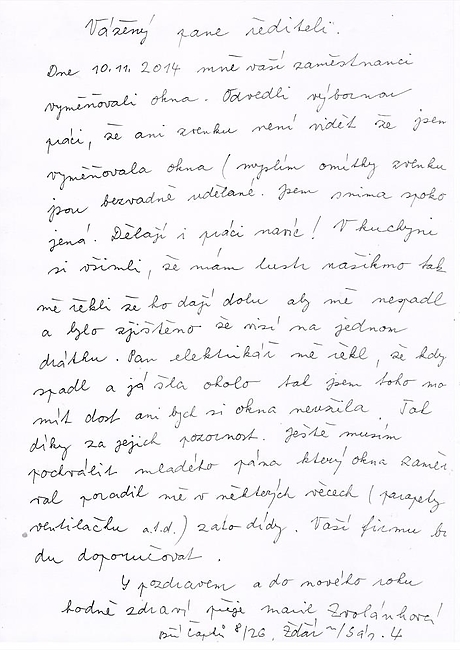 Vážený pane řediteli.
Dne 10.11.2014 mně vaší zaměstnanci
vyměňovali okna. Odvedli výbornou
práci, že ani zvenku není vidět že jsem
vyměňovala okna (myslím omítky zvenku
jsou bezvadně udělané. Jsem snima spoko
jená. Dělají i práci navíc! V kuchyni
si všimli, že mám lustr našikmo tak
mě řekli že ho dají dolu aby mě nespadl
a bylo zjištěno že visí na jednom
drátku. Pan elektrikář mě řekl, že kdy
spadl a já šla okolo tak jsem toho mo
mít dost ani bych si okna neužila. Tak
díky za jejich pozornost. Ještě musím
pochválit mladého pána který okna zaměř
val poradil mě v některých věcech (parapety
ventilačku a.t.d.) zato dídy. Vaší firmu bu
du doporučovat.
S pozdravem a do nového roku
hodně zdraví přeje Zvolánková
Čapků 8/26, Žďár n/Sáz. 4